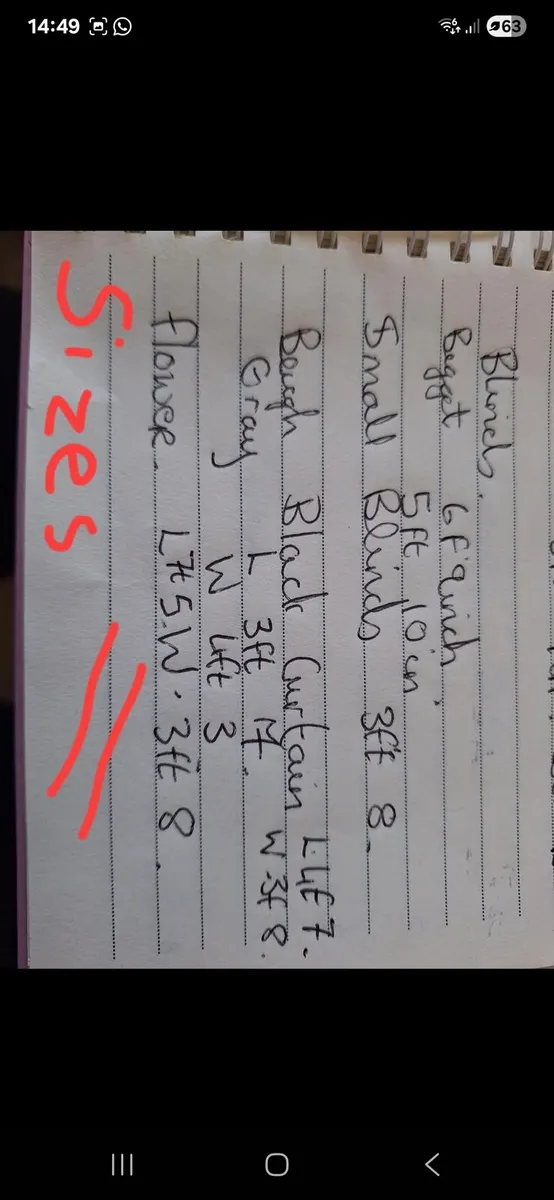 14:49
63
Blinds.
Bigget 6f 9inch
5ft 10in.
Small Blinds 3ft 8.
Beigh Black Curtain L 4f 7.
W 3f 8.
Gray L 3ft
W 4ft 3
flower. L 7ft 5. W. 3ft 8.
Sizes